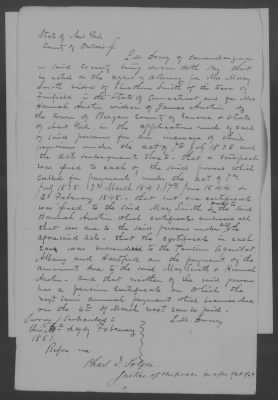 State of New York
County of Ontario
of Canandaigua
in said County being sworn doth say that
he acted as the agent & attorney for Mrs Mary
Smith widow of Smith of the town of
Fairfield in the State of Connecticut and for Mrs
Hannah Austin widow of James Austin of
the town of County of Genesee & State
of New York in the applications made by each
of said persons for the increase of their
pensions under the act of 7th July 1838 and
the acts amendatory thereto - that a certificate
was issued to each of the said persons which
called for payments under the act of 7th
July 1838. 3rd March 1843. 17th June 1844 &
2d February 1848. that but one certificate
was issued to the said Mary Smith and
Hannah Austin which certificate embraced all
that was due to the said persons under the
aforesaid acts - that the certificate in each
case was surrendered to the Pension Agent at
Albany and Hartford on the payment of the
amounts due to the said Mary Smith & Hannah
Austin - And that neither of the said persons
has a pension certificate on which the
next semi annual payment which becomes due
on the 4th of March next can be paid.
Sworn & subscribed
this 5th day of February
1851
Before me
Justice of the peace